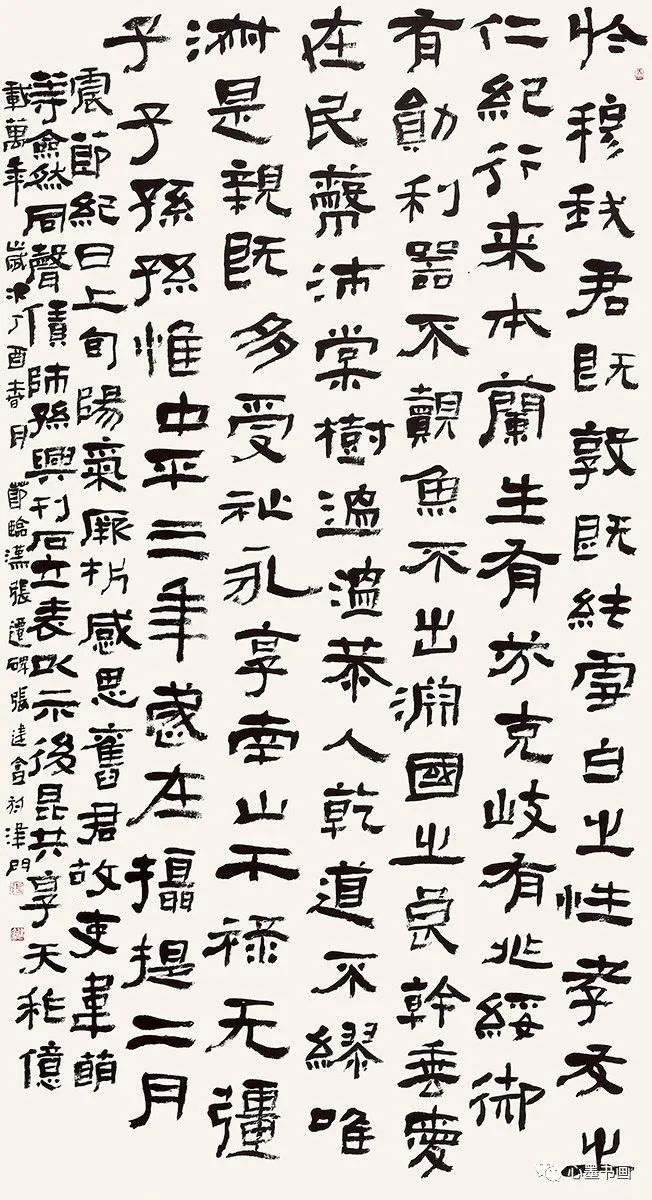 扵穆我君既敦既純雪白之性孝友之
仁紀行来本蘭生有芬克岐有兆綏御
有勛利器不覿魚不出淵國之良幹垂愛
在民蔽沛棠樹温温恭人乾道不繆唯
淋是親既多受祉永享南山干禄无疆
子子孫孫惟中平三年歲在攝提二月
震節紀日上旬陽氣厥析感思舊君故吏韋萌
等僉然同聲賃師孫興刊石立表以示後昆共享天祚億
載萬年 歲次丁酉春月 節臨漢張遷碑 張建會於津門
心墨书画